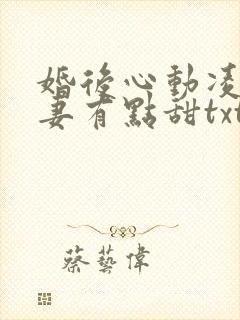 婚後心動凌
妻有點甜txt
蔡藝偉